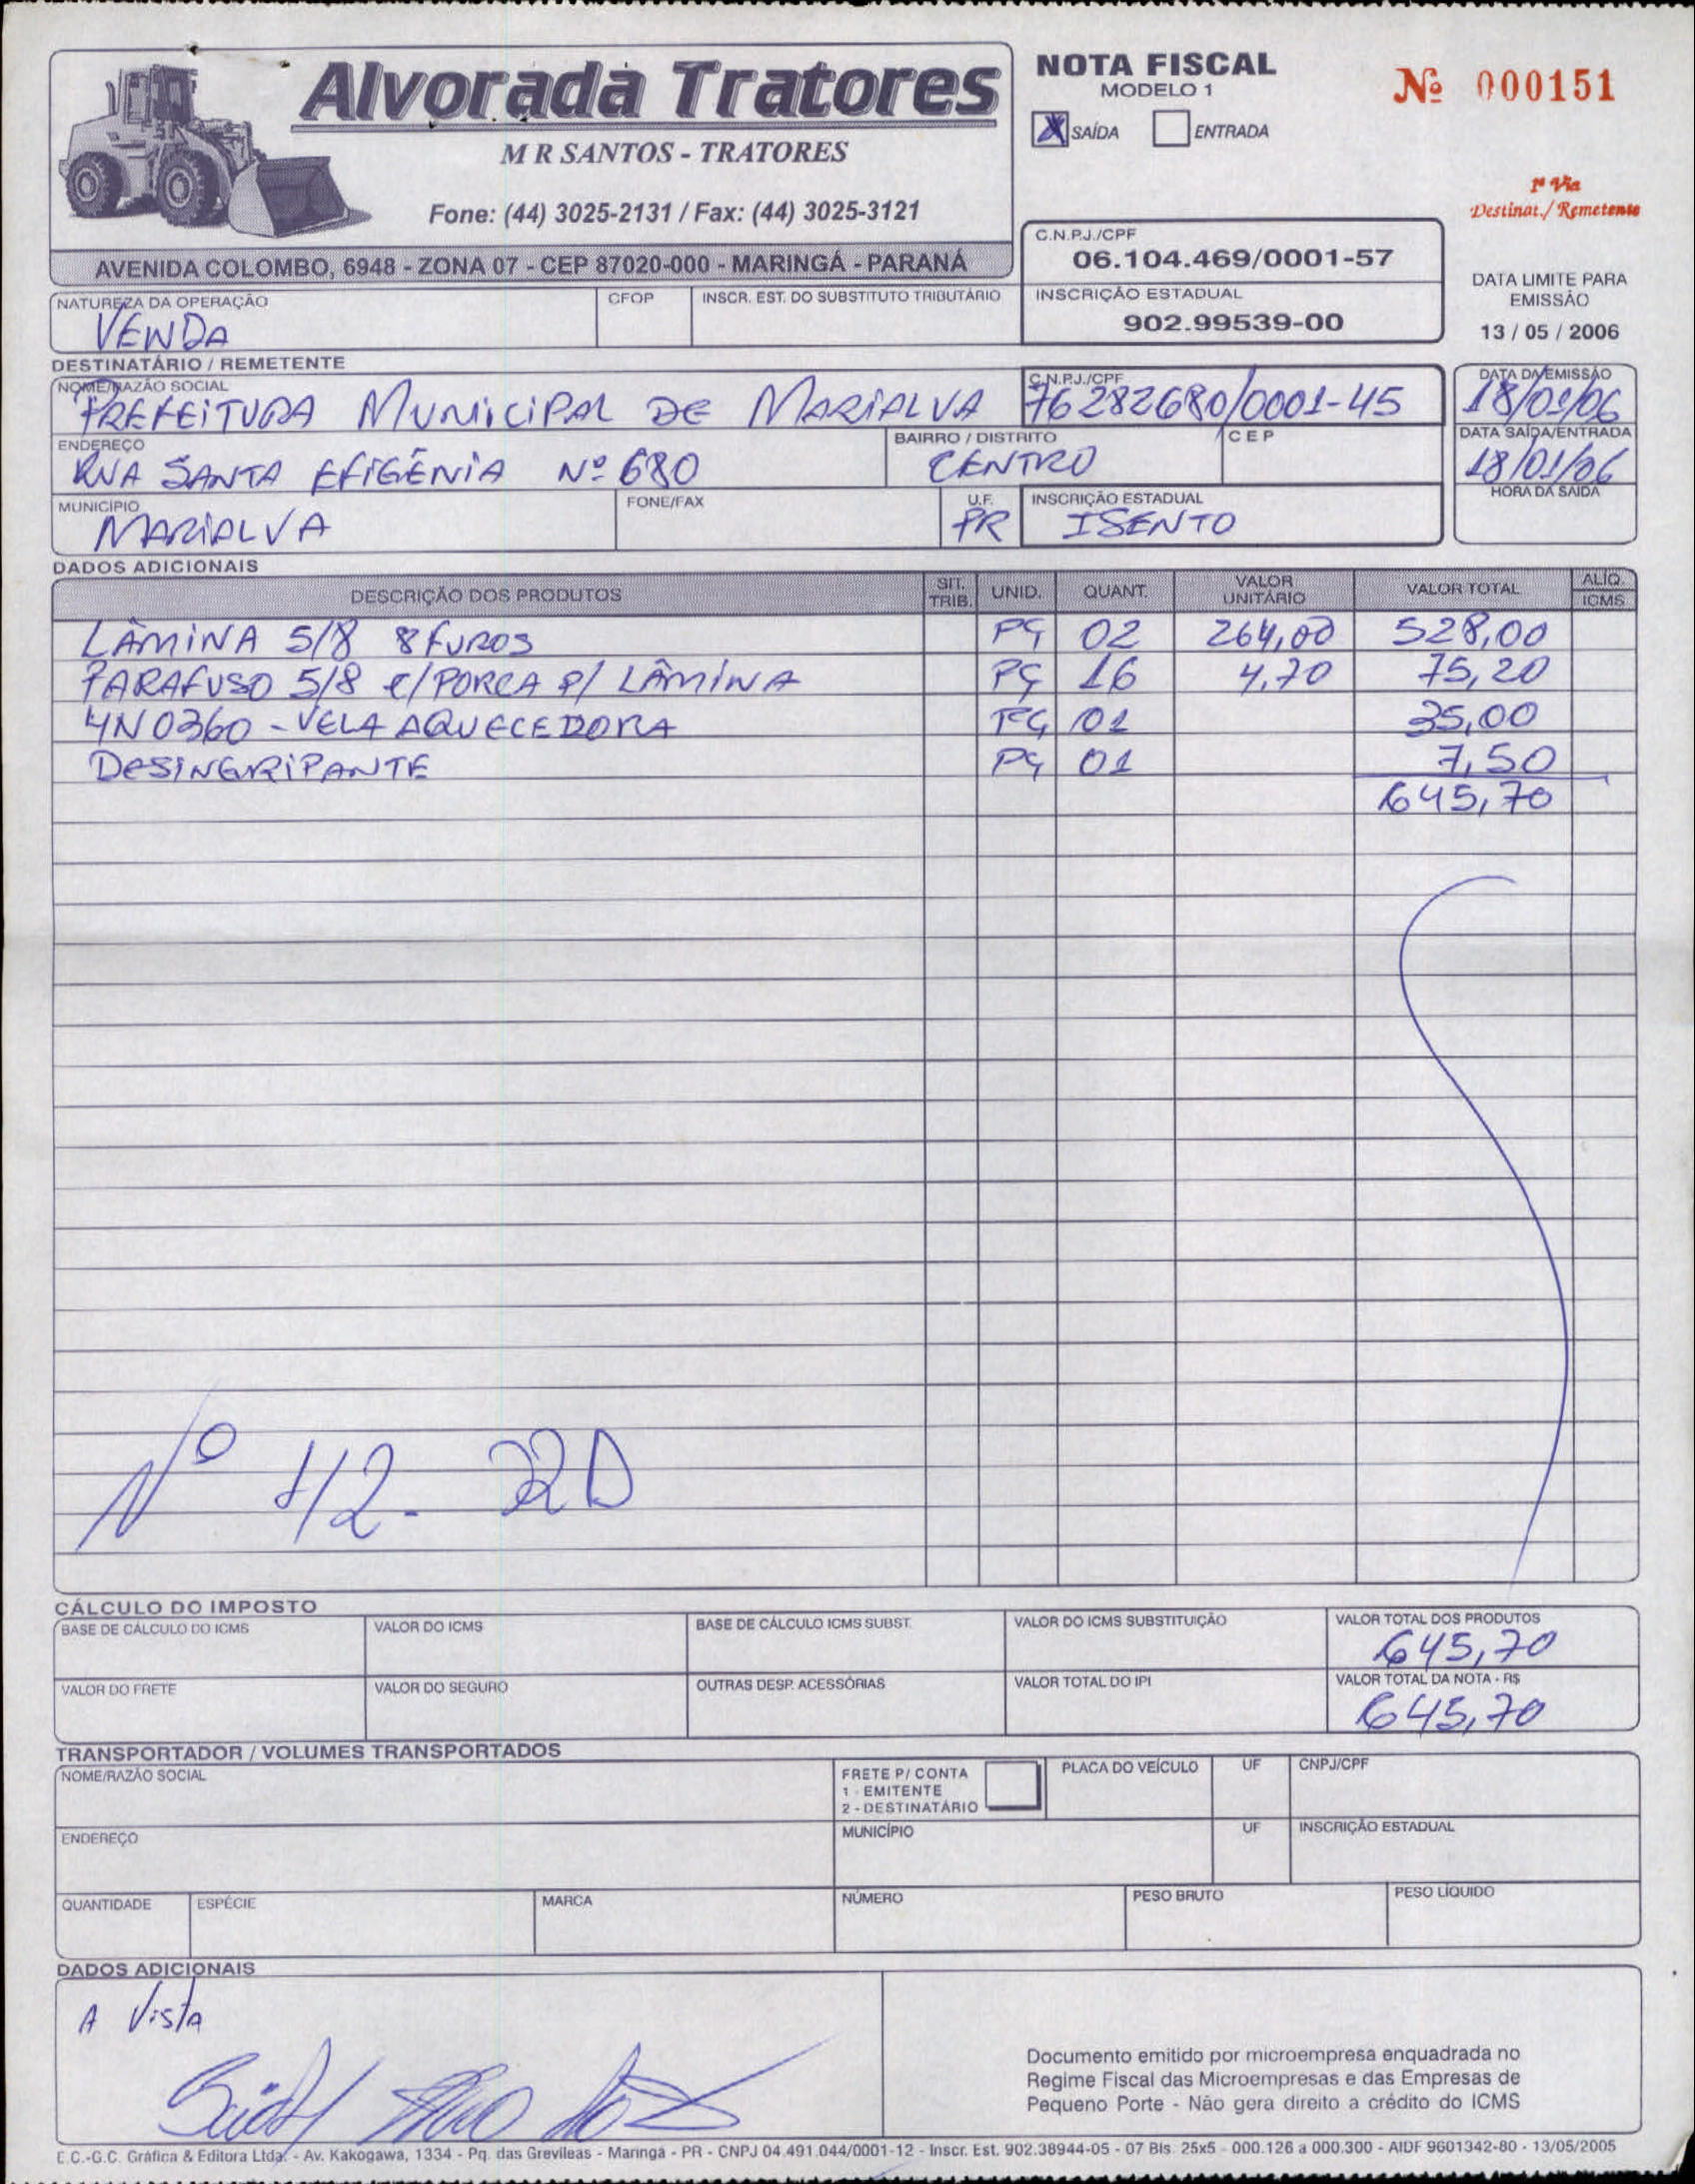 Alvorada Tratores
M R SANTOS - TRATORES
Fone: (44) 3025-2131 / Fax: (44) 3025-3121
AVENIDA COLOMBO, 6948 - ZONA 07 - CEP 87020-000 - MARINGÁ - PARANÁ
NOTA FISCAL
MODELO 1
X SAÍDA ENTRADA
Nº 000151
1ª Via
Destinat./ Remetente
C.N.P.J./CPF
06.104.469/0001-57
INSCRIÇÃO ESTADUAL
902.99539-00
DATA LIMITE PARA
EMISSÃO
13 / 05 / 2006
NATUREZA DA OPERAÇÃO CFOP INSCR. EST. DO SUBSTITUTO TRIBUTÁRIO
VENDA
DESTINATÁRIO / REMETENTE
NOME/RAZÃO SOCIAL C.N.P.J./CPF DATA DA EMISSÃO
PREFEITURA MUNICIPAL DE MARIALVA 76282680/0001-45 18/01/06
ENDEREÇO BAIRRO / DISTRITO CEP DATA SAÍDA/ENTRADA
RUA SANTA EFIGÊNIA Nº 680 CENTRO 18/01/06
MUNICÍPIO FONE/FAX U.F. INSCRIÇÃO ESTADUAL HORA DA SAÍDA
MARIALVA PR ISENTO
DADOS ADICIONAIS
DESCRIÇÃO DOS PRODUTOS SIT. TRIB. UNID. QUANT. VALOR UNITÁRIO VALOR TOTAL ALÍQ. ICMS
LÂMINA 5/8 8 FUROS PÇ 02 264,00 528,00
PARAFUSO 5/8 C/PORCA P/ LÂMINA PÇ 16 4,70 75,20
4N0360 - VELA AQUECEDORA PÇ 01 35,00
DESINGRIPANTE PÇ 01 7,50
645,70
Nº
CÁLCULO DO IMPOSTO
BASE DE CÁLCULO DO ICMS VALOR DO ICMS BASE DE CÁLCULO ICMS SUBST. VALOR DO ICMS SUBSTITUIÇÃO VALOR TOTAL DOS PRODUTOS
645,70
VALOR DO FRETE VALOR DO SEGURO OUTRAS DESP. ACESSÓRIAS VALOR TOTAL DO IPI VALOR TOTAL DA NOTA - R$
645,70
TRANSPORTADOR / VOLUMES TRANSPORTADOS
NOME/RAZÃO SOCIAL FRETE P/ CONTA PLACA DO VEÍCULO UF CNPJ/CPF
1 - EMITENTE
2 - DESTINATÁRIO
ENDEREÇO MUNICÍPIO UF INSCRIÇÃO ESTADUAL
QUANTIDADE ESPÉCIE MARCA NÚMERO PESO BRUTO PESO LÍQUIDO
DADOS ADICIONAIS
A Vista
Documento emitido por microempresa enquadrada no
Regime Fiscal das Microempresas e das Empresas de
Pequeno Porte - Não gera direito a crédito do ICMS
E.C.-G.C. Gráfica & Editora Ltda. - Av. Kakogawa, 1334 - Pq. das Grevíleas - Maringá - PR - CNPJ 04.491.044/0001-12 - Inscr. Est. 902.38944-05 - 07 Bls. 25x5 - 000.126 a 000.300 - AIDF 9601342-80 - 13/05/2005